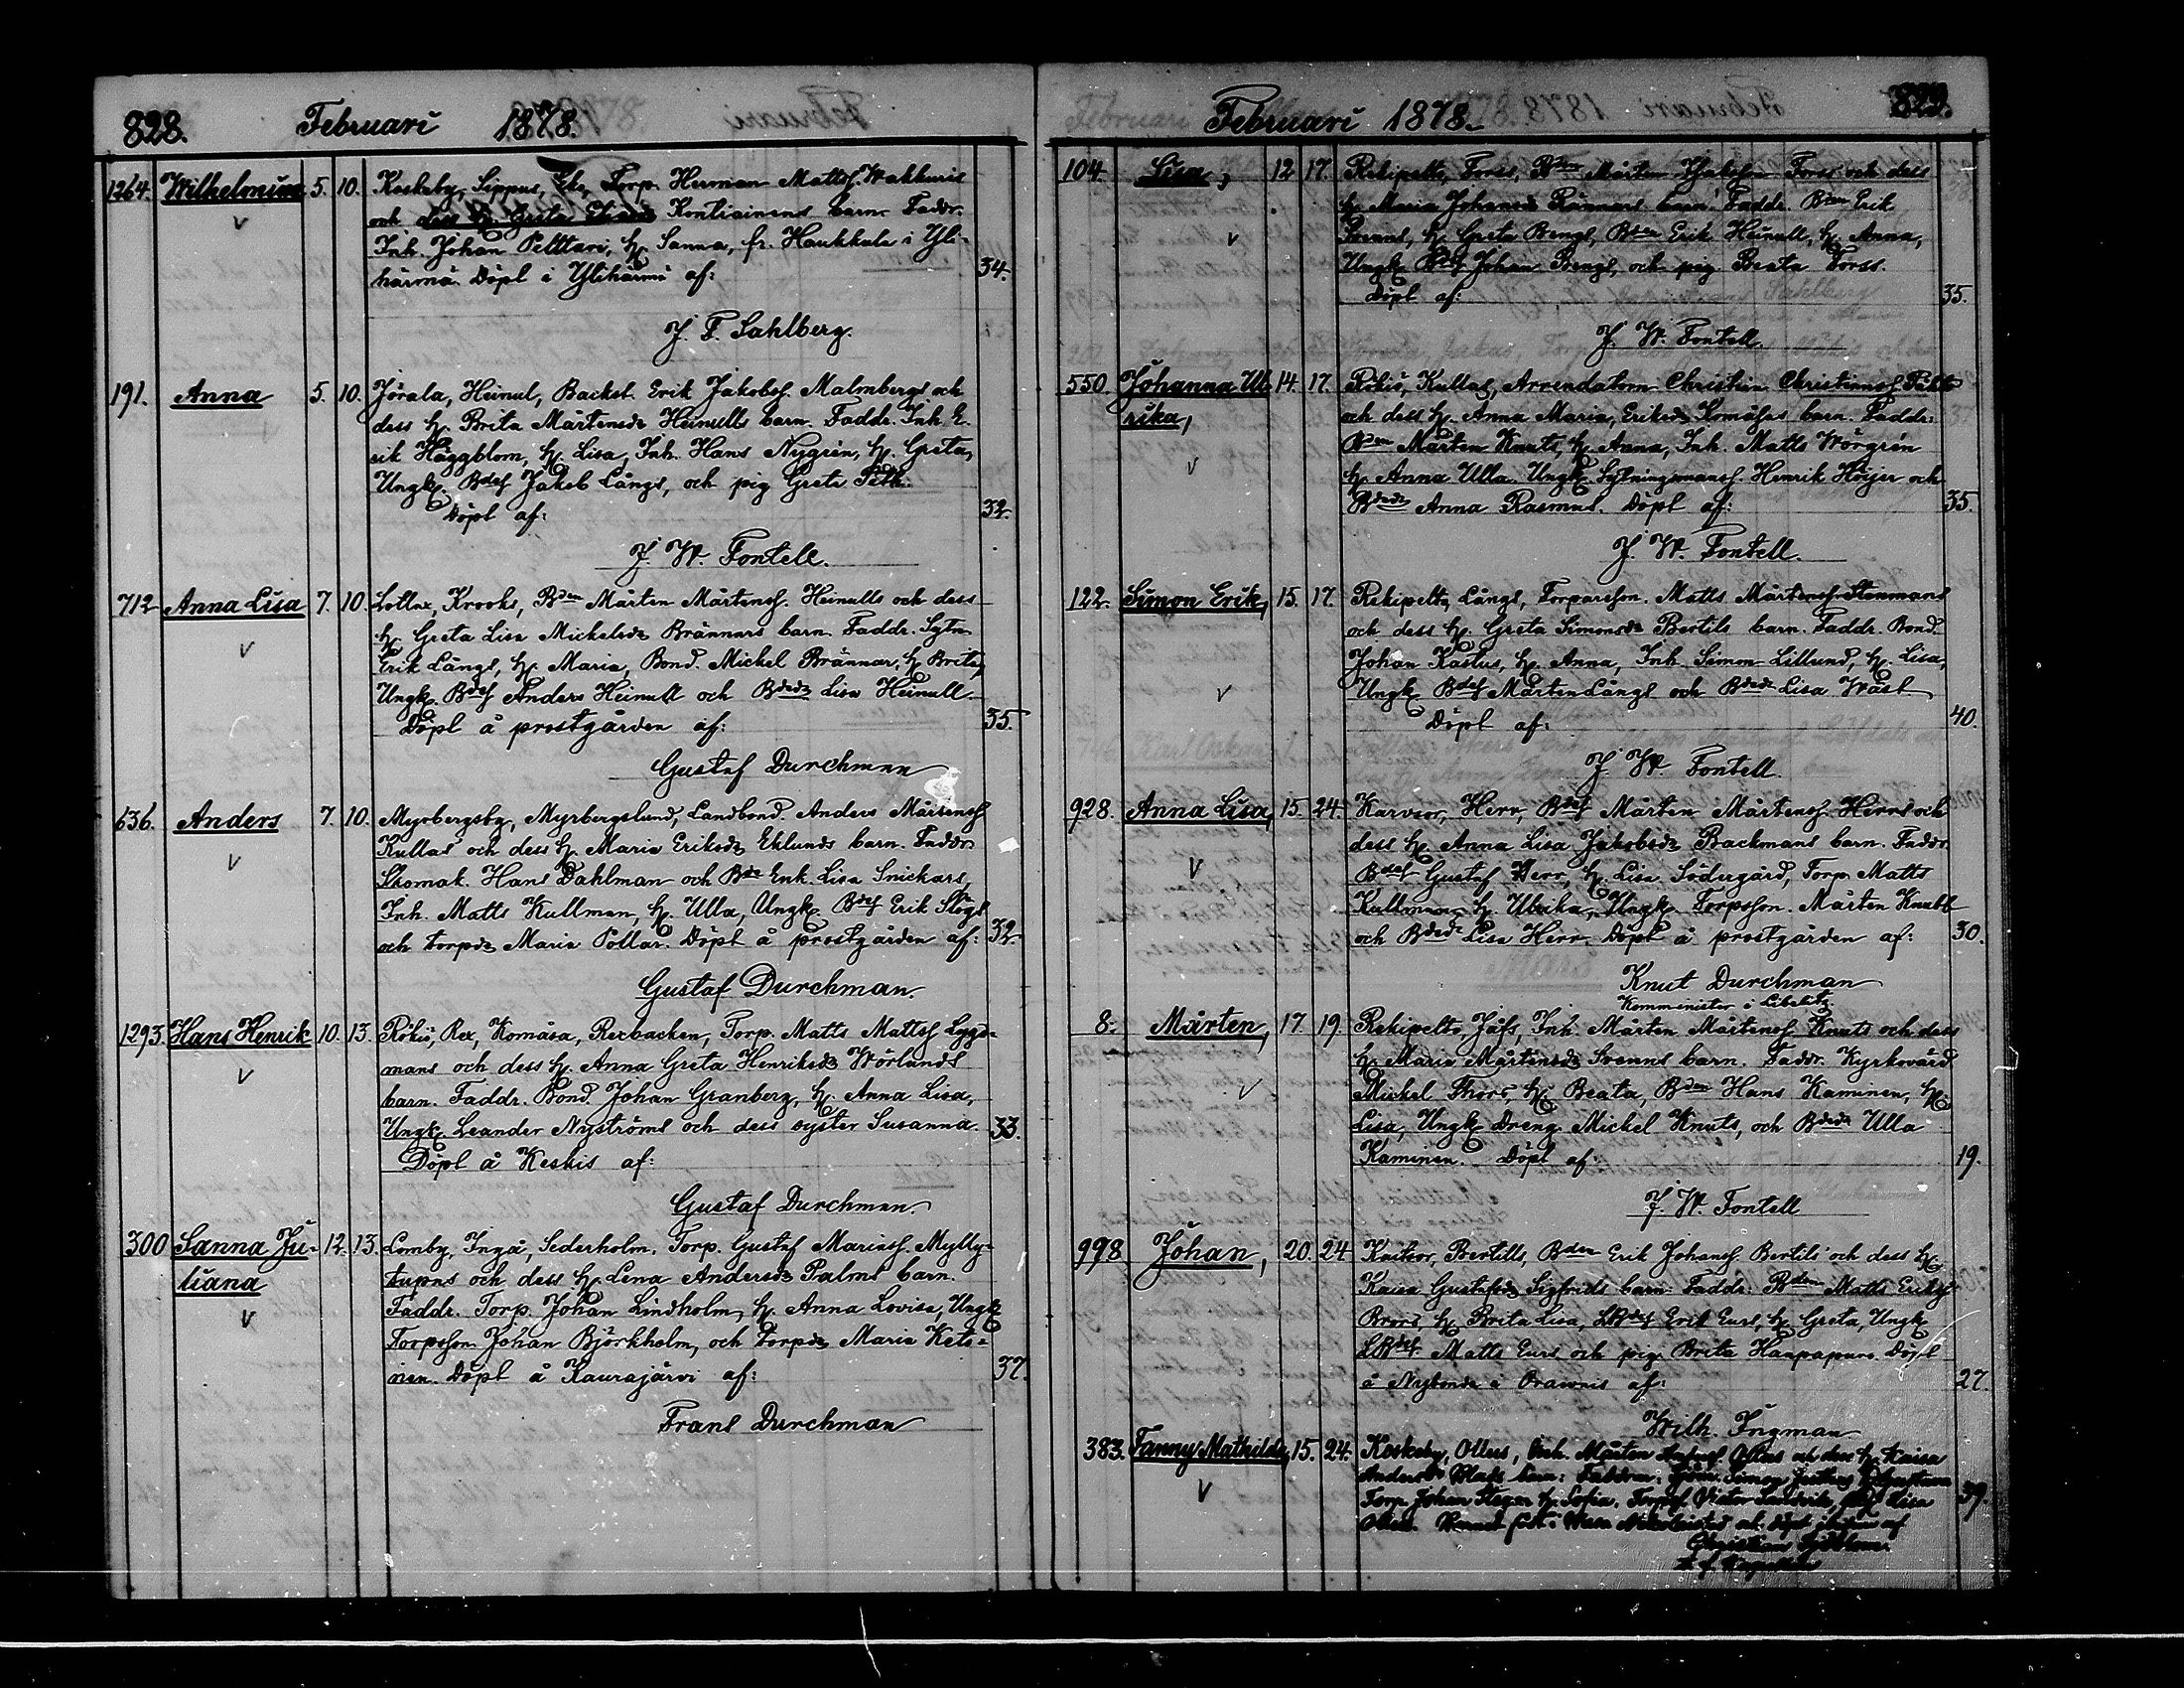 828. Februari 1878.
1264. Wilhelmina 5. 10. Koskeby, Sippus, Eke, Torp. Herman Mattss. Wakkuris
och dess H. Greta Eliaedr Kontiainens barn. Faddr.
Inh. Johan Pelttari, H. Sanna, fr. Haukkala i Yli-
härmä. Döpt i Ylihärmä af: 34.
J. F. Sahlberg.
191. Anna 5. 10. Jörala, Heinul, Backst. Erik Jakobss. Malmbergs och
dess H. Brita Mårtensdr Heinulls barn. Faddr. Inh. E-
rik Häggblom, H. Lisa, Inh. Hans Nygrén, H. Greta,
Ungk. Bdes Jakob Långs, och pig Greta Peth.
Döpt af: 32.
J. W. Fontell.
712 Anna Lisa 7. 10. Lotlax, Krooks, Bden Mårten Mårtenss. Heinulls och dess
H. Greta Lisa Mickelsdr Brännars barn. Faddr. Sytn.
Erik Långs, H. Maria, Bond. Mickel Brännar, H. Brita,
Ungk. Bdes Anders Heinull och Bdedr Lisa Heinull.
Döpt å prostgården af: 35.
Gustaf Durchman
636. Anders 7. 10. Myrbergsby, Myrbergslund, Landbond. Anders Mårtenss
Kullas och dess H. Maria Eriksdr Eklunds barn. Faddr.
Skomak. Hans Dahlman och Bde Enk. Lisa Snickars,
Inh. Matts Kullman, H. Ulla, Ungk. Bdes Erik Slögs
och torpdr Maria Pollar. Döpt å prostgården af: 32.
Gustaf Durchman.
1293. Hans Henrik 10. 13. Rökiö, Rex, Komåsa, Rexbacken, Torp. Matts Mattss Lygg-
mans och dess H. Anna Greta Henriksdr Wörlunds
barn. Faddr. Bond. Johan Granberg, H. Anna Lisa,
Ungk. Leander Nyströms och dess syster Susanna. 33.
Döpt å Keskis af:
Gustaf Durchman.
300 Sanna Ju- 12. 13. Lomby, Ingå, Sederholm, Torp. Gustaf Mariass. Mylly-
liana
tupas och dess H. Lena Andersdr Palms barn.
Faddr. Torp. Johan Lindholm, H. Anna Lovisa, Ungk
Torpsson Johan Björkholm, och torpdr Maria Keto-
nen. Döpt å Kaurajärvi af: 37.
Frans Durchman
Februari 1878. 829.
104. Lisa, 12 17. Rekipelto, Forss, Bden Mårten Jakobsson Forss och dess
H. Maria Johansdr Rännars barn. Faddr. Bden Erik
Svenns, H. Greta Bengs, Bden Erik Heinull, H. Anna,
Ungk. Bdes Johan Bengs, och pig. Beata Forss.
Döpt af: 35.
J. W. Fontell.
550 Johanna Ul- 14. 17. Rökiö, Kullas, Arrendatorn Christian Christianss.
rika,
och dess H. Anna Maria, Eriksdr Komåsas barn. Faddr:
Bden Mårten Knuts, H. Anna, Inh. Matts Wörgrén
H. Anna Ulla. Ungk. Sytningsmanss. Henrik Höijer och
Bdedr Anna Rasmus. Döpt af: 35.
J. W. Fontell.
122. Simon Erik, 15. 17. Rekipelto, Långs, Torpareson. Matts Mårtenss. Stenmans
och dess H. Greta Simonsdr Bertils barn. Faddr. Bond.
Johan Kastus, H. Anna, Inh. Simon Lillund, H. Lisa,
Ungk. Bdes Mårten Långs och Bdedr Lisa Wäst
Döpt af: 40.
J. W. Fontell.
928. Anna Lisa, 15. 24. Karvsor, Herr, Bdes Mårten Mårtenss. Herrs och
dess H. Anna Lisa Jakobsdr Backmans barn. Faddr.
Bdes Gustaf Herr, H. Lisa Södergård, Torp. Matts
Kullman, H. Ulrika, Ungk. Torpsson. Mårten Knubb
och Bdedr Lisa Herr. Döpt å prostgården af: 30.
Knut Durchman
Komminister i Libelitz.
8. Mårten, 17 19 Rekipelto, Jåfs, Inh. Mårten Mårtenss Knuts och dess
H. Maria Mårtensdr Svenns barn. Faddr. Kyrkovärd.
Mickel Thors, H. Beata, Bden Hans Kaminen, H.
Lisa, Ungk Dreng Mickel Knuts, och Bdedr Ulla
Kaminen. Döpt af: 19.
J. W. Fontell
998 Johan, 20. 24 Kaitsor, Bertills, Bden Erik Johanss. Bertils och dess H.
Kaisa Gustafsdr Sigfrids barn. Faddr. Bden Matts Erikss
Brors, H. Brita Lisa, LBdes Erik Eurs, H. Greta, Ungk
LBdes Matts Eurs och pig. Brita Hanpapuro. Döpt
å Nybonde i Oravais af: 27.
Wilh. Ingman
383. Fanny Mathilda 15. 24. Koskeby, Ollers, Mårten och dess H. Kaisa
39.
Torp. Johan H. Sofia, Lisa